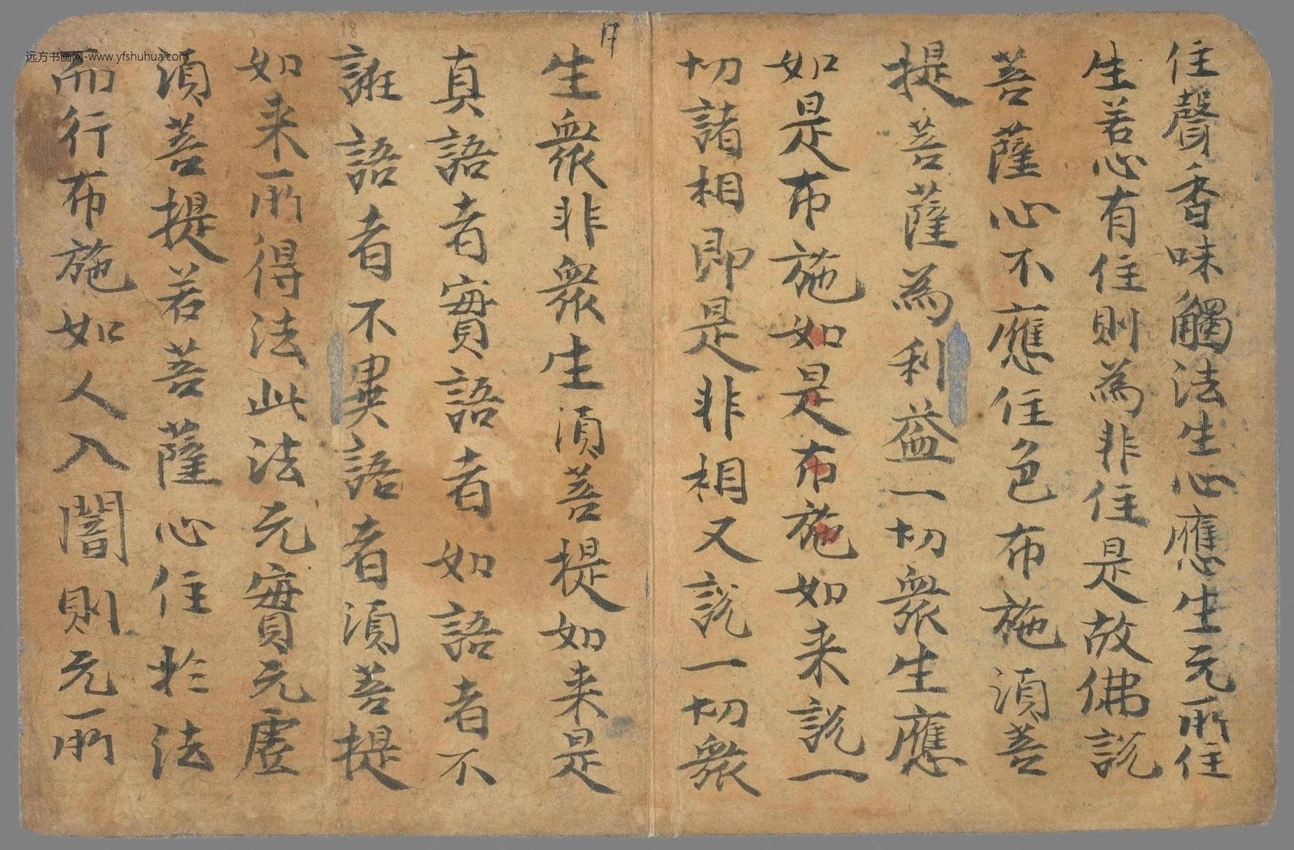 住聲香味觸法生心應生无所住
生若心有住則為非住是故佛說
菩薩心不應住色布施須菩
提菩薩為利益一切衆生應
如是布施如是布施如来說一
切諸相即是非相又說一切衆
17
生衆非衆生須菩提如来是
真語者實語者如語者不
18
誑語者不異語者須菩提
如来所得法此法无實无虛
須菩提若菩薩心住於法
而行布施如人入闇則无所
远方书画网-www.yfshuhua.com